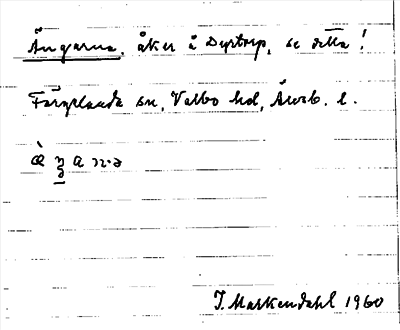 Ängarna, åker å Dyrtorp, se detta!
Färgelanda sn, Valbo hd, Älvsb. l.
J. Markendahl 1960